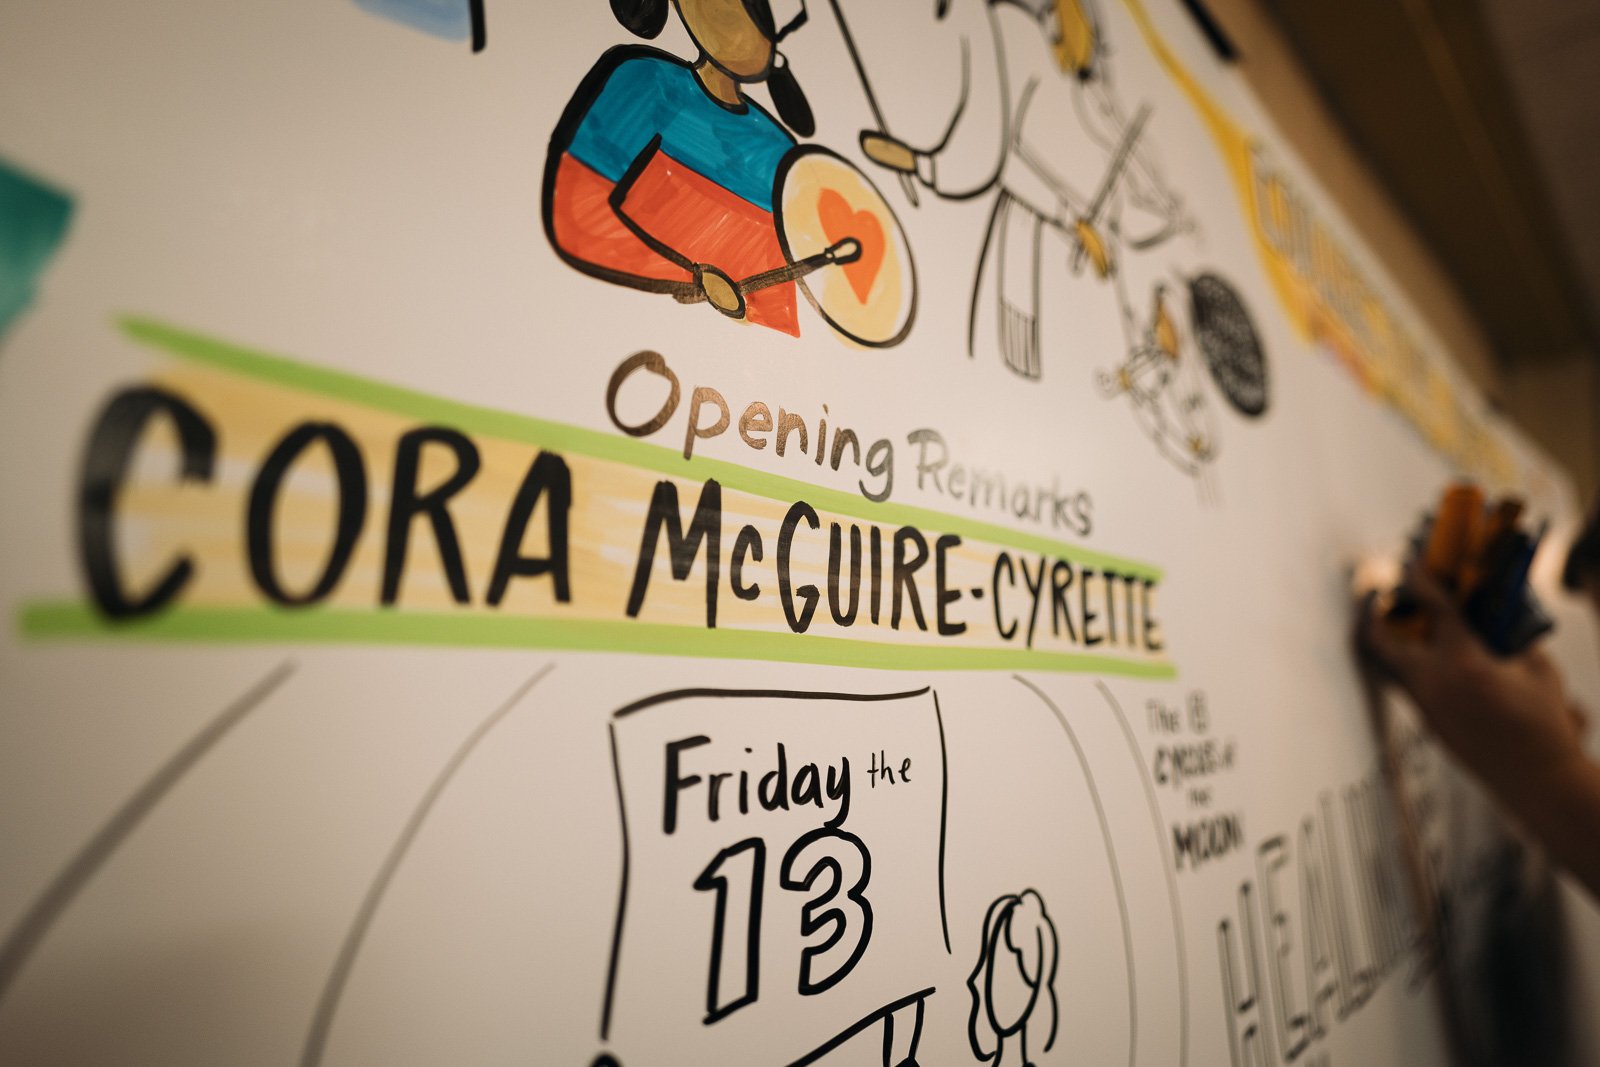 Opening Remarks
CORA McGUIRE-CYRETTE
Friday the
13
The 13
CYCLES of
the
MOON